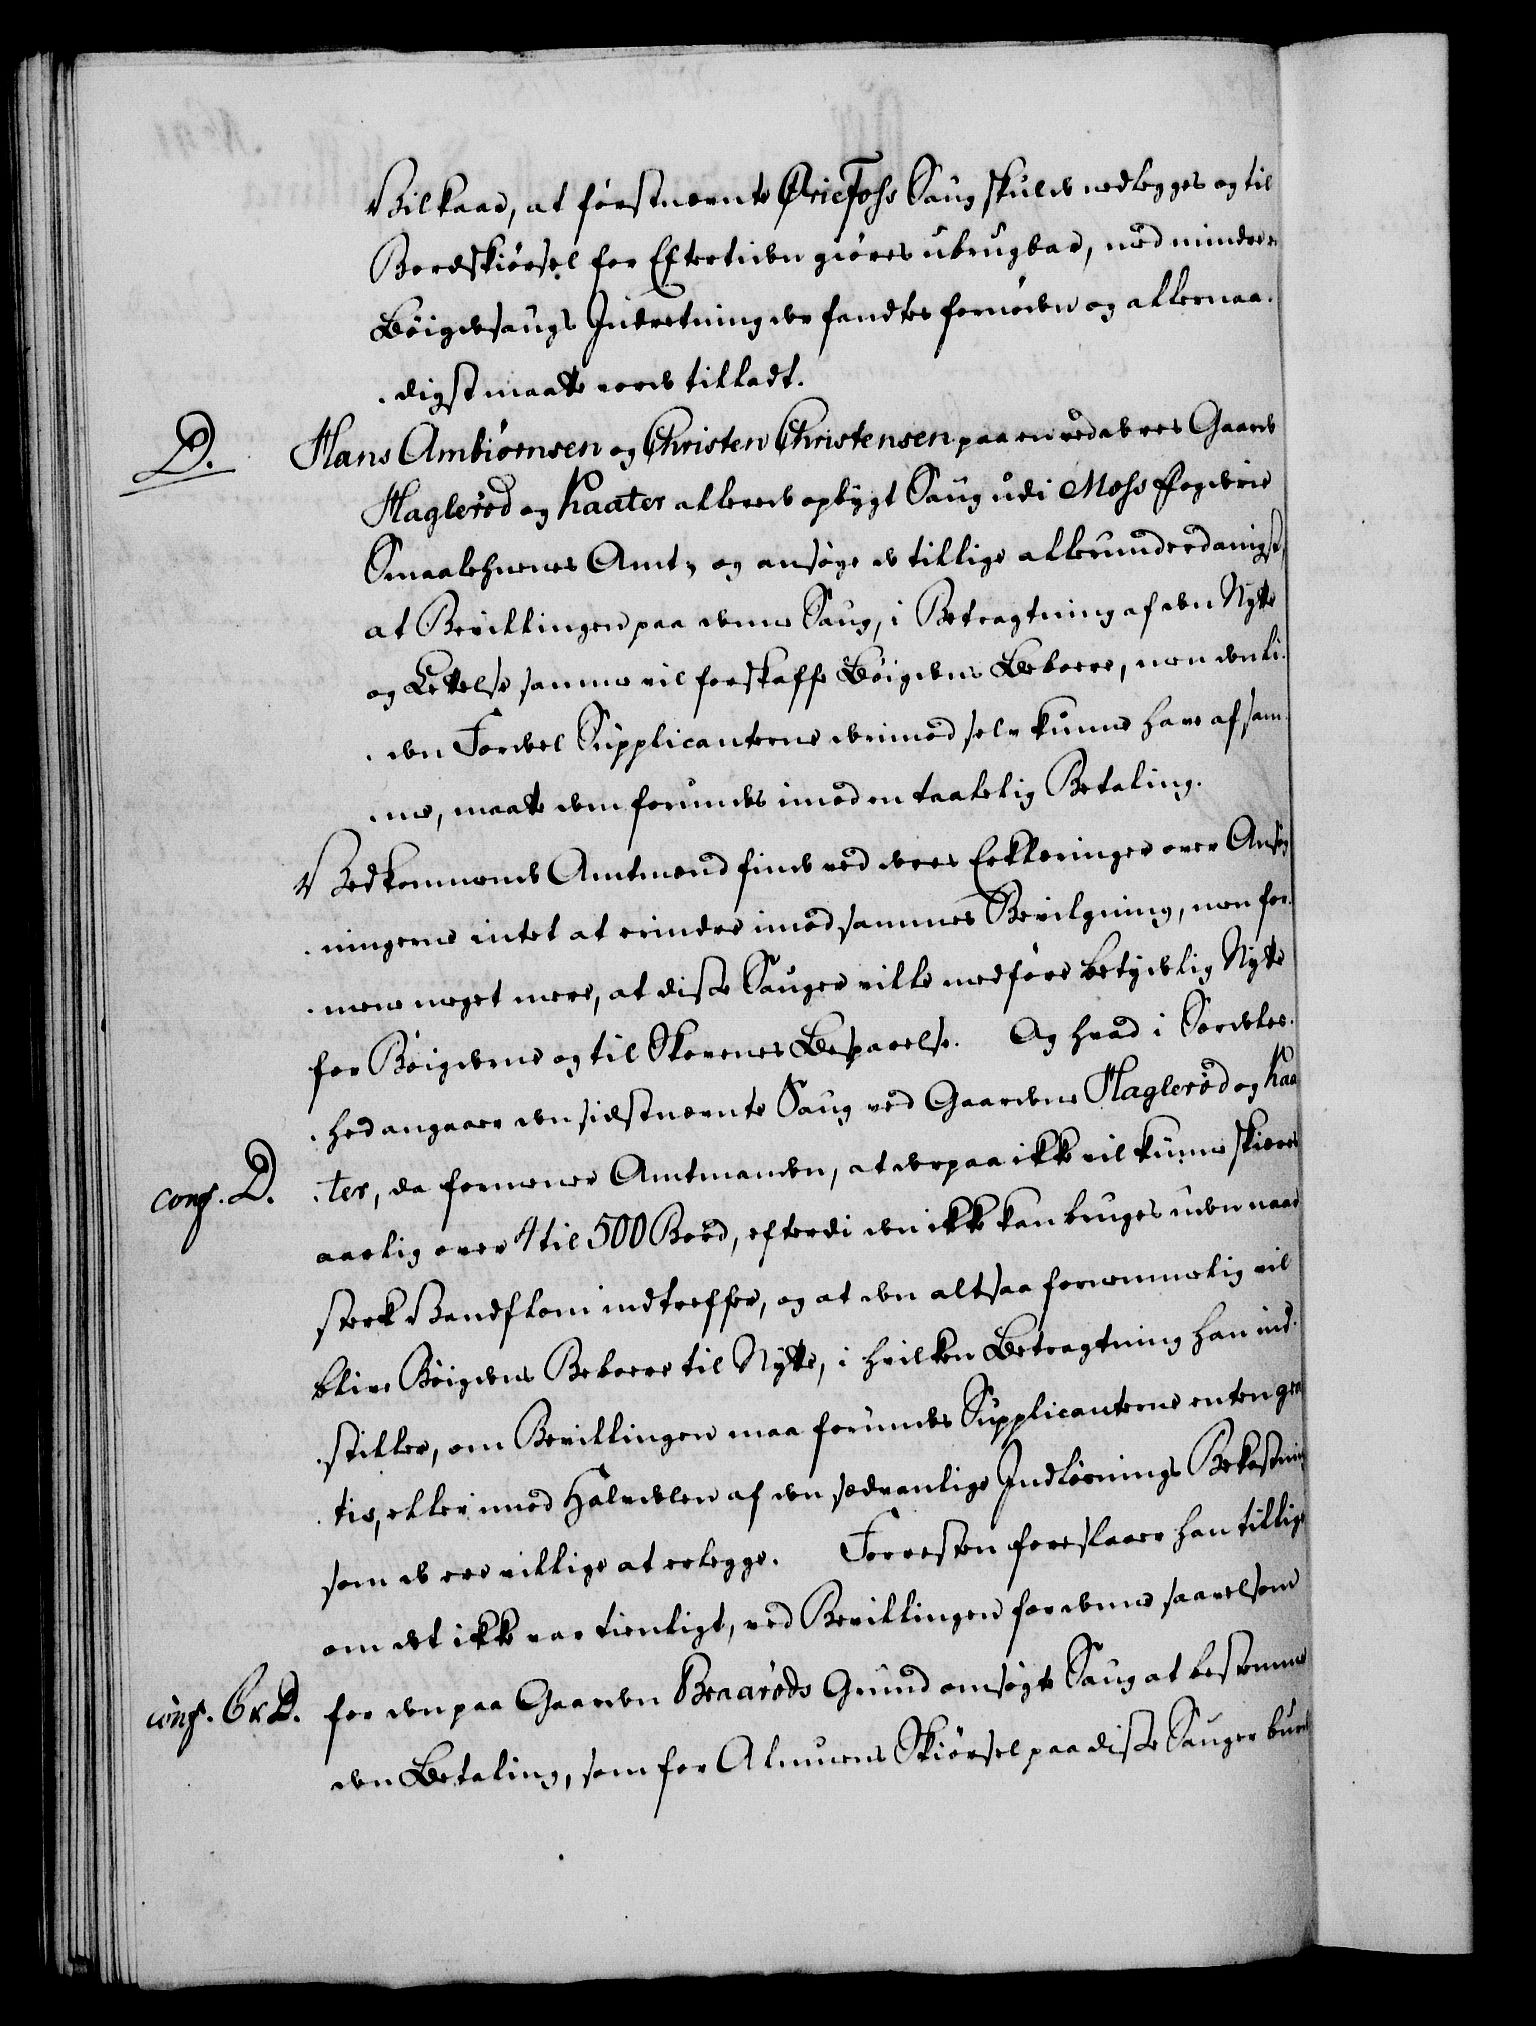 Vilkaar, at førstnevnte Øriefoss Saug skulde nedlegges og til
Bordskiørsel for Eftertiden giøres ubrugbar, med mindre en
Bøigdesaugs Indretning der fandtes fornøden og allernaa-
digst maatte vorde tilladt.
D. Hans Ambiørnsen og Christen Christensen paa en ved deres Gaarde
Haglerød og Kaater allerede opbygt Saug udi Moss Fogderie
Smaalehnenes Amt, og ansøge de tillige allerunderdanigst,
at Bevillingen paa denne Saug, i Betragtning af den Nytte
og Lettelse samme vil forskaffe Bøigdens Beboere, men den li-
den Fordeel Supplicanterne derimod selv kunne have af sam-
me, maatte dem forundes imod en taalelig Betaling.
Vedkommende Amtmænd finde ved deres Erklæringer over Ansøg-
ningerne intet at erindre imod sammes Bevilgning, men for-
mene meget mere, at disse Sauger ville medføre betydelig Nytte
for Bøigderne og til Skovenes Besparelse. Og hvad i Særdeles-
hed angaaer den sidstnevnte Saug ved Gaardene Haglerød og Kaa-
conf. D. ter, da formener Amtmanden, at derpaa ikke vil kunne skiæres
aarlig over 4 til 500 Bord, efterdi den ikke kan bruges uden naar
sterk Vandflom indtreffer, og at den altsaa fornemmelig vil
blive Bøigdens Beboere til Nytte, i hvilken Betragtning han ind-
stiller, om Bevillingen maa forundes Supplicanterne enten gra-
tis, eller imod Halvdelen af den sædvanlige Indløsnings Bekostning
som de ere villige at erlegge. Forresten foreslaaer han tillige
om det ikke var tienligt, ved Bevillingen for denne saavelsom
conf. B & D. for den paa Gaarden Braarøds Grund ansøgte Saug at bestemme
den Betaling, som for Almuens Skiørsel paa disse Sauger burde